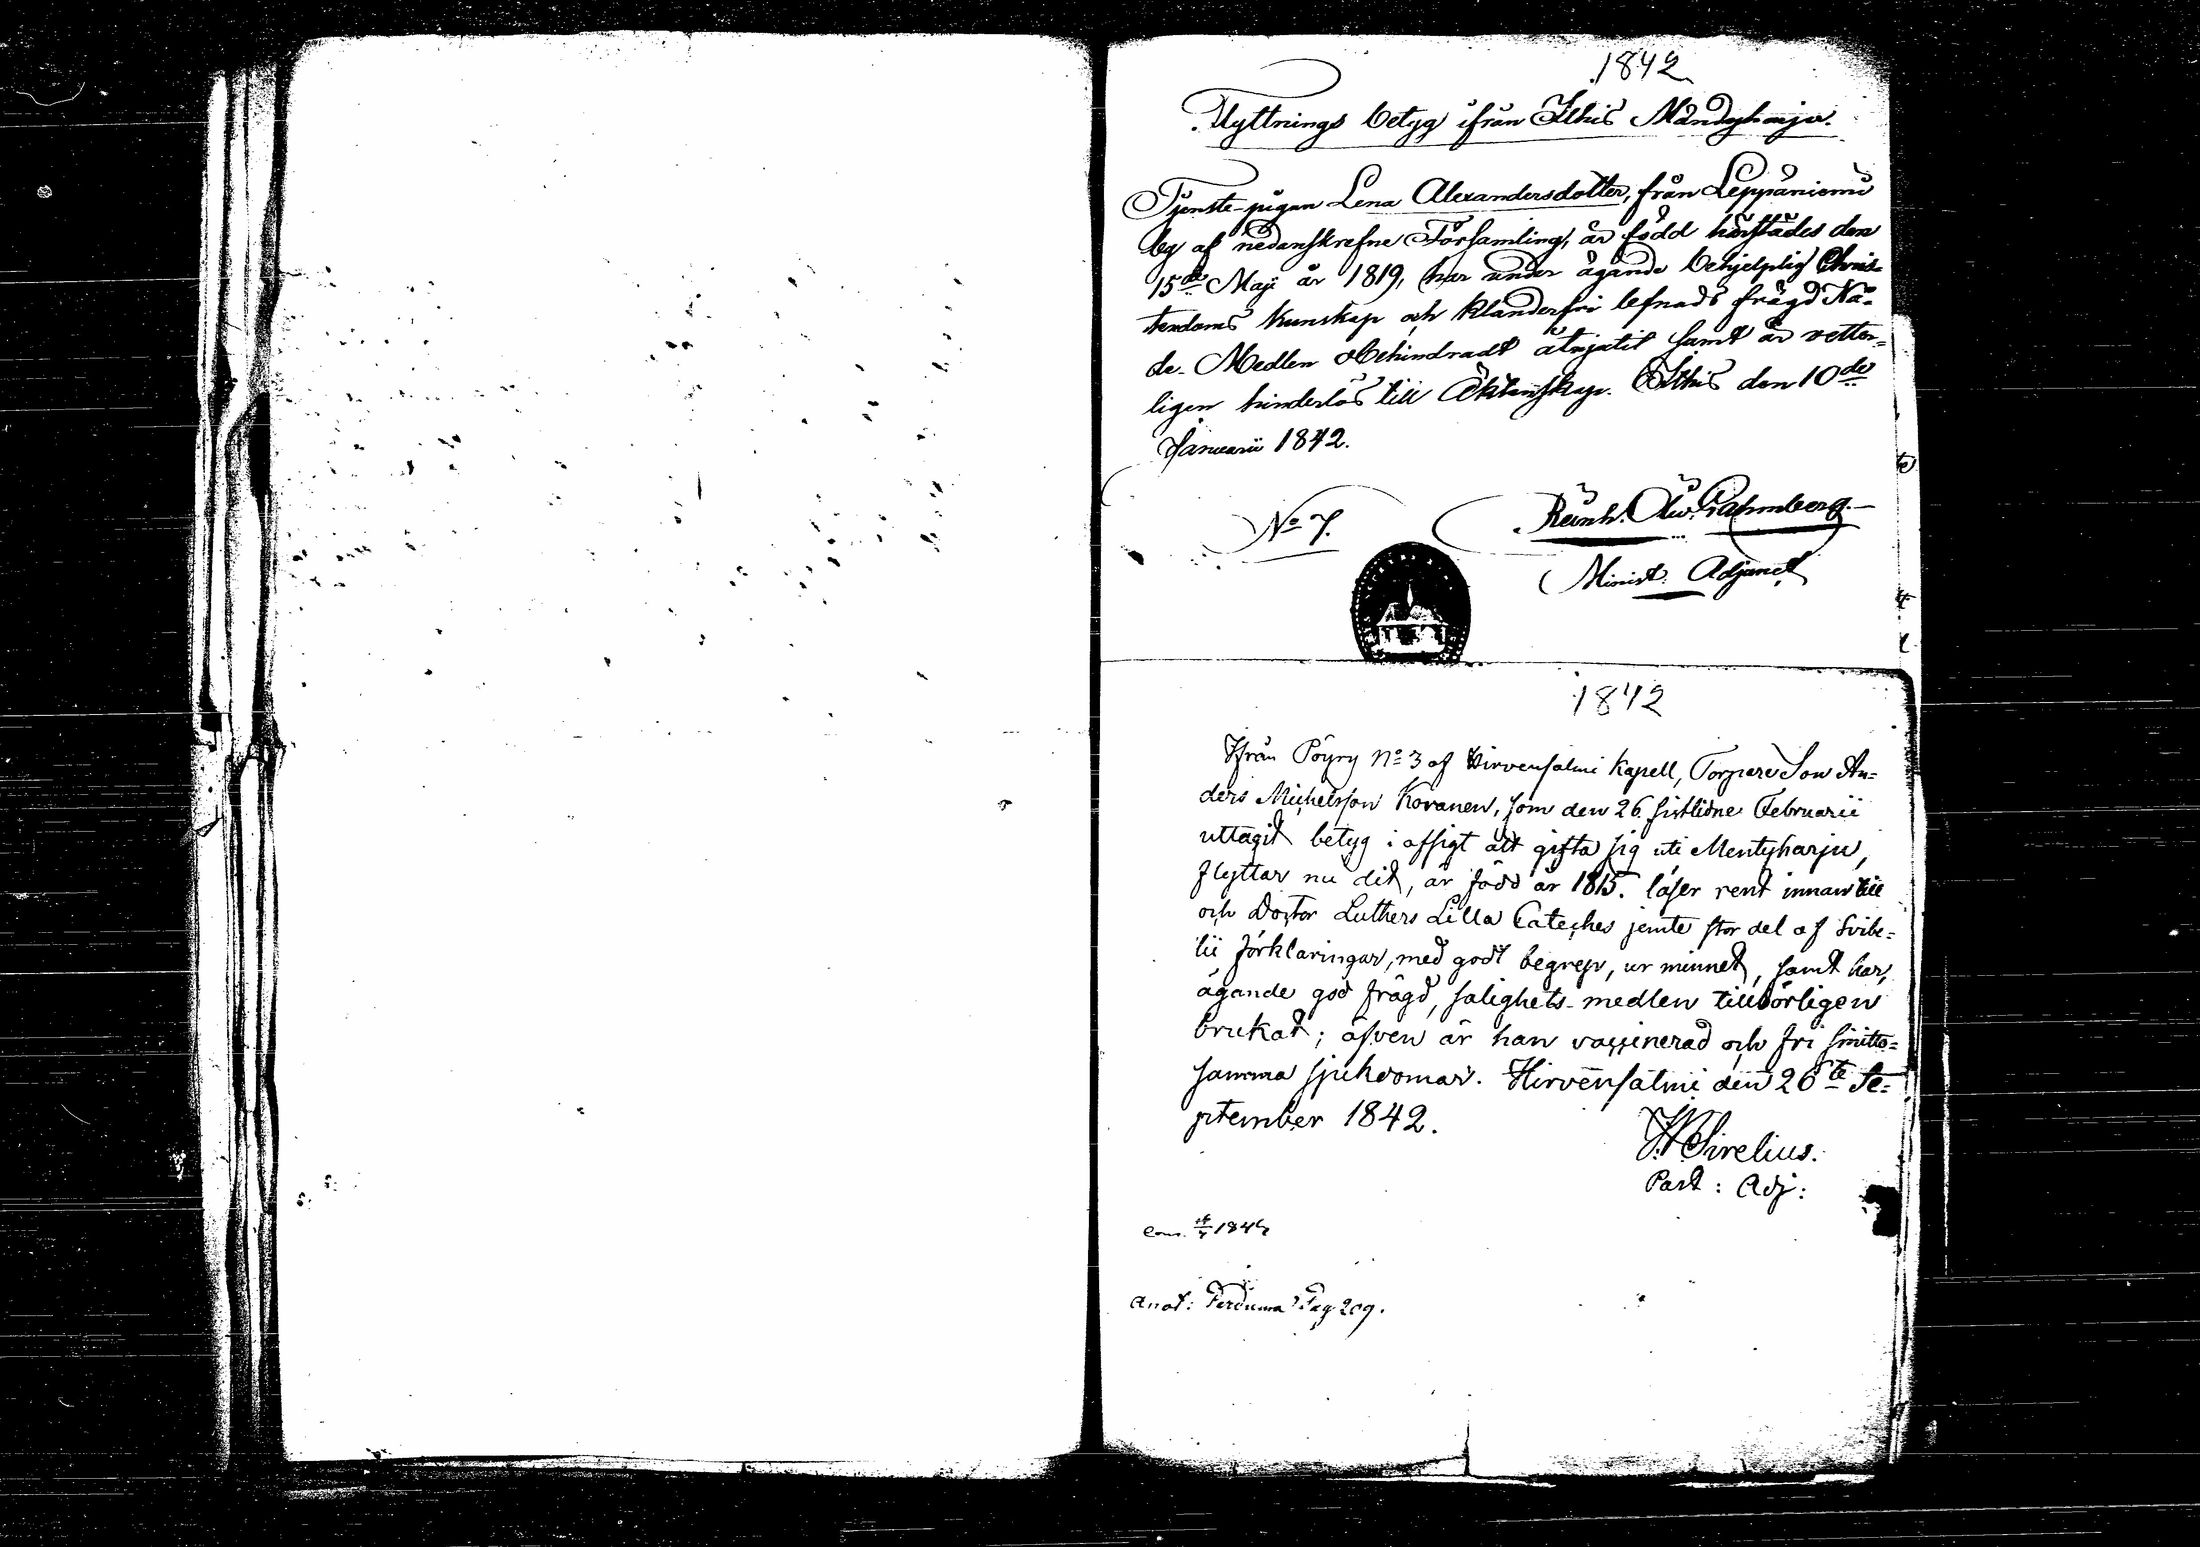 1842
Flyttnings betyg ifrån Itthis Mändyharju.
Tjenste-pigan Lena Alexandersdotter, från Leppäniemi
by af nedanskrefne Församling, är född härstädes den
15de Maji år 1819, har under ägande behjelplig Chris-
tendoms kunskap och klanderfri lefnads frägd Nå-
de-Medlen obehindradt åtnjutit samt är vetter-
ligen hinderlös till Äktenskap. Itthis den 10de
Januarii 1842.
No 7.
Reinh. Alex. Grahnberg.
Minist. Adjunct
1842
Ifrån Pöyry No 3 af Hirvensalmi Kapell, Torpare Son An=
ders Michelsson Kovanen, som den 26 sistlidne Februarii
uttagit betyg i afsigt att gifta sig uti Mentyharju,
flyttar nu dit, är född år 1815. läser rent innantill
och Doctor Luthers Lilla Cateches jemte stor del af Svibe=
lii förklaringar, med godt begrep, ur minnet, samt har,
ägande god frägd, salighets-medlen tillbörligen
brukat; äfven är han vaccinerad och fri smitto=
samma sjukdomar. Hirvensalmi den 26te Se=
ptember 1842.
Sirelius.
Past: Adj:
Anot: Pertuma Pag 209.